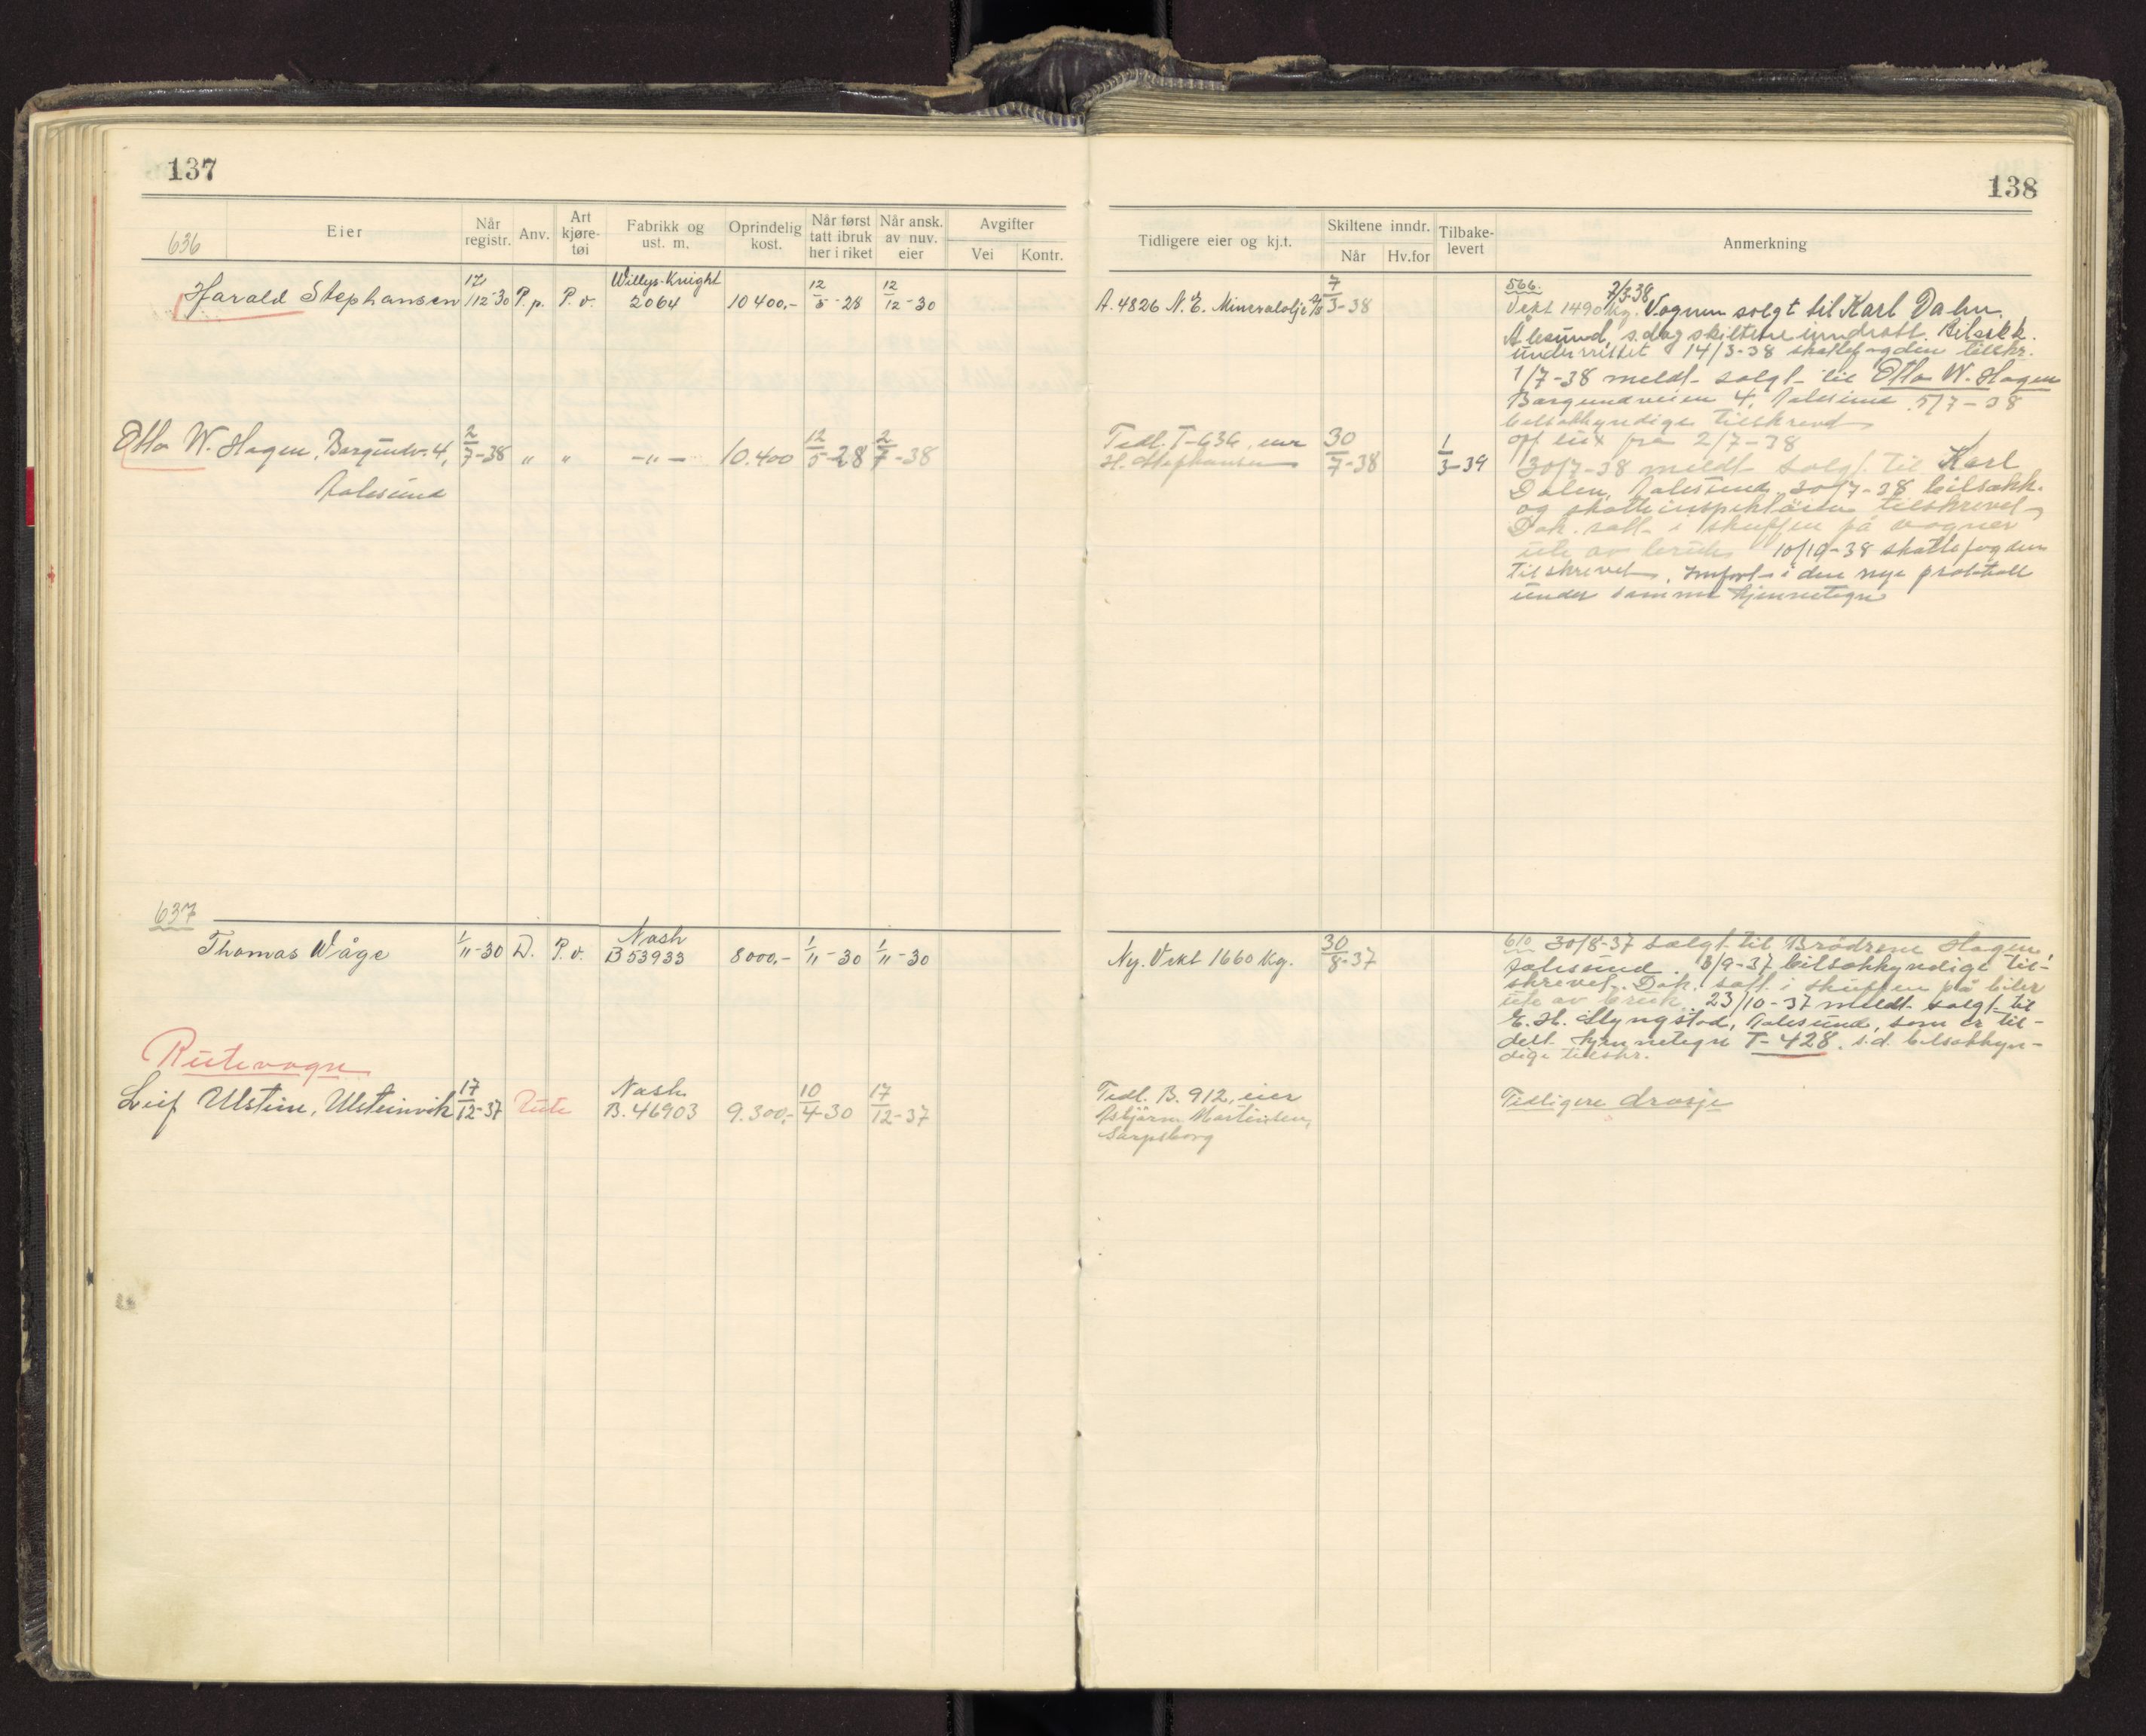 137
138
636
Eier
Når registr.
Anv.
Art kjøre-tøi
Fabrikk og ust. m.
Oprindelig kost.
Når først tatt ibruk her i riket
Når ansk. av nuv. eier
Avgifter
Vei
Kontr.
Tidligere eier og kj.t.
Skiltene inndr.
Når
Hv.for
Tilbake-levert
Anmerkning
Harald Stephansen
/12-30
P.p.
P.v.
Willys-Knight
2064
10400,-
12/5-28
12/12-30
A.4826 N.E. Mineralolje A/S
7/3-38
566.
Vekt 1490 kg. 7/3-38 Vognen solgt til Karl Dalen
Ålesund, s.dag skiltene inndratt. Bilsakk.
underrettet 14/3-38 skattefogden tilskr.
1/7-38 meldt solgt til Otto W. Hagen
Borgundveien 4, Aalesund 5/7-38
bilsakkyndige tilskrevet
Otto W. Hagen, Borgundv. 4,
Aalesund
2/7-38
"
"
-"-
10.400
12/5-28
2/7-38
Tidl. T-636, eier
H. Stephansen
30/7-38
1/3-39
opf. eier fra 2/7-38
30/7-38 meldt solgt til Karl
Dalen, Aalesund 30/7-38 bilsakk.
og skatteinspektören tilskrevet
Dok. satt i skuffen på vogner
ute av bruk 10/10-38 skattefogden
tilskrevet. Innført i den nye protokoll
under samme kjennetegn
637
Thomas Wåge
1/11-30
D.
P.v.
Nash
B53933
8000,-
1/11-30
1/11-30
Ny. Vekt 1660 kg.
30/8-37
610 30/8-37 solgt til Brödrene Hagen,
Aalesund. 3/9-37 bilsakkyndige til-
skrevet. Dok. satt i skuffen på biler
ute av bruk. 23/10-37 meldt solgt til
E. H. Slyngstad, Aalesund, som er til-
delt kjennetegn T-428. s.d. bilsakkyn-
dige tilskr.
Rutevogn
Leif Ulstein, Ulsteinvik
17/12-37
Rute
Nash
B.46903
9.300,-
10/4-30
17/12-37
Tidl. B. 912, eier
Asbjörn Martinsen,
Sarpsborg
Tidligere drosje